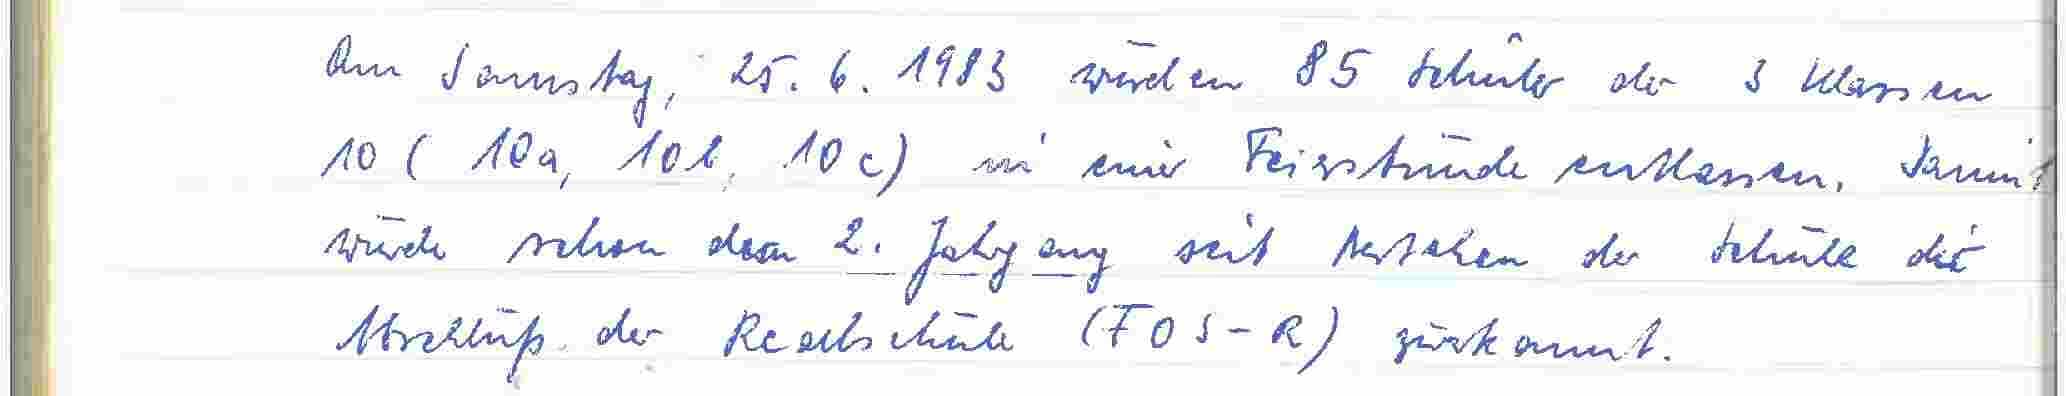 Am Samstag, 25. 6. 1983 wurden 85 Schüler der 3 Klassen
10 ( 10a, 10b, 10c) in einer Feierstunde entlassen. Damit
wurde schon dem 2. Jahrgang seit Bestehen der Schule die
Abschluß der Realschule (FOS-R) zuerkannt.